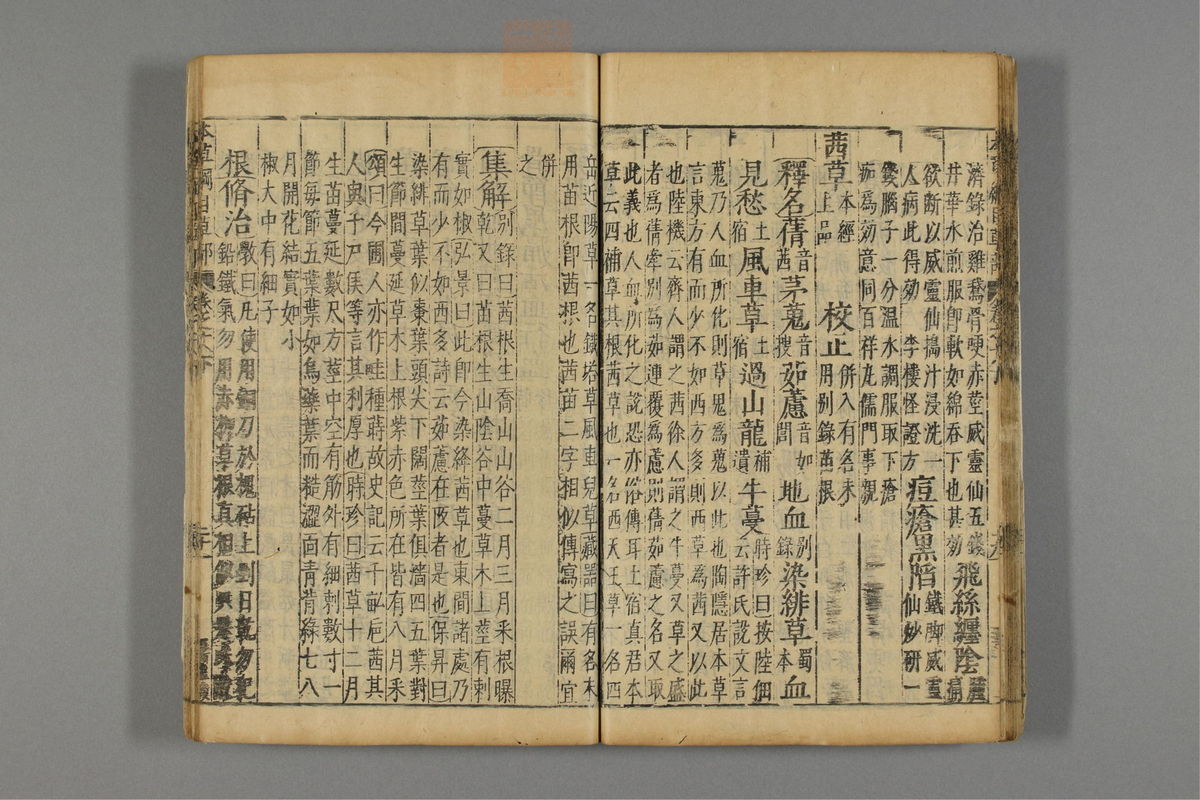 濟錄治雞鵞骨哽赤莖威靈仙五錢飛絲纏陰腫痛
欲斷以威靈仙搗汁浸洗一
井華水煎服卽軟如綿吞下也甚効
人病此得効 李樓怪證方痘瘡黑陷鐵脚威靈仙炒研一
錢腦子一分温水調服取下瘡
痂爲効意同百祥丸儒門事親
茜草本經上品 校正併入有名未用别錄苗根
釋名蒨音茜茅蒐音搜茹藘音如閭地血别錄染緋草蜀本血
見愁土宿風車草土宿過山龍補遺牛蔓時珍曰按陸佃云許氏說文言
蒐乃人血所化則草鬼爲蒐以此也陶隱居本草
言東方有而少不如西方多則西草爲茜又以此
也陸機云齊人謂之茜徐人謂之牛蔓又草之盛
者爲蒨牽引爲茹連覆爲藘則蒨茹藘之名又取
此義也人血所化之說恐亦俗傳耳土宿真君本
草云四補草其根茜草也一名西天王草一名四
岳近陽草一名鐵塔草風車兒草藏器曰有名未
用苗根卽茜根也茜苗二字相似傳寫之誤爾宜
併
之
集解别錄曰茜根生喬山山谷二月三月采根曝乾又曰苗根生山陰谷中蔓草木上莖有刺
實如椒弘景曰此卽今染絳茜草也東間諸處乃
有而少不如西多詩云茹藘在阪者是也保昇曰
染緋草葉似棗葉頭尖下闊莖葉俱澀四五葉對
生節間蔓延草木上根紫赤色所在皆有八月采
頌曰今圃人亦作畦種蒔故史記云千畝巵茜其
人與千戶侯等言其利厚也時珍曰茜草十二月
生苗蔓延數尺方莖中空有筋外有細刺數寸一
節每節五葉葉如烏藥葉而糙澀面青背緑七八
月開花結實如小
椒大中有細子
根脩治斆曰凡使用銅刀於槐砧上剉日乾勿犯鉛鐵氣勿用赤柳草根真相似